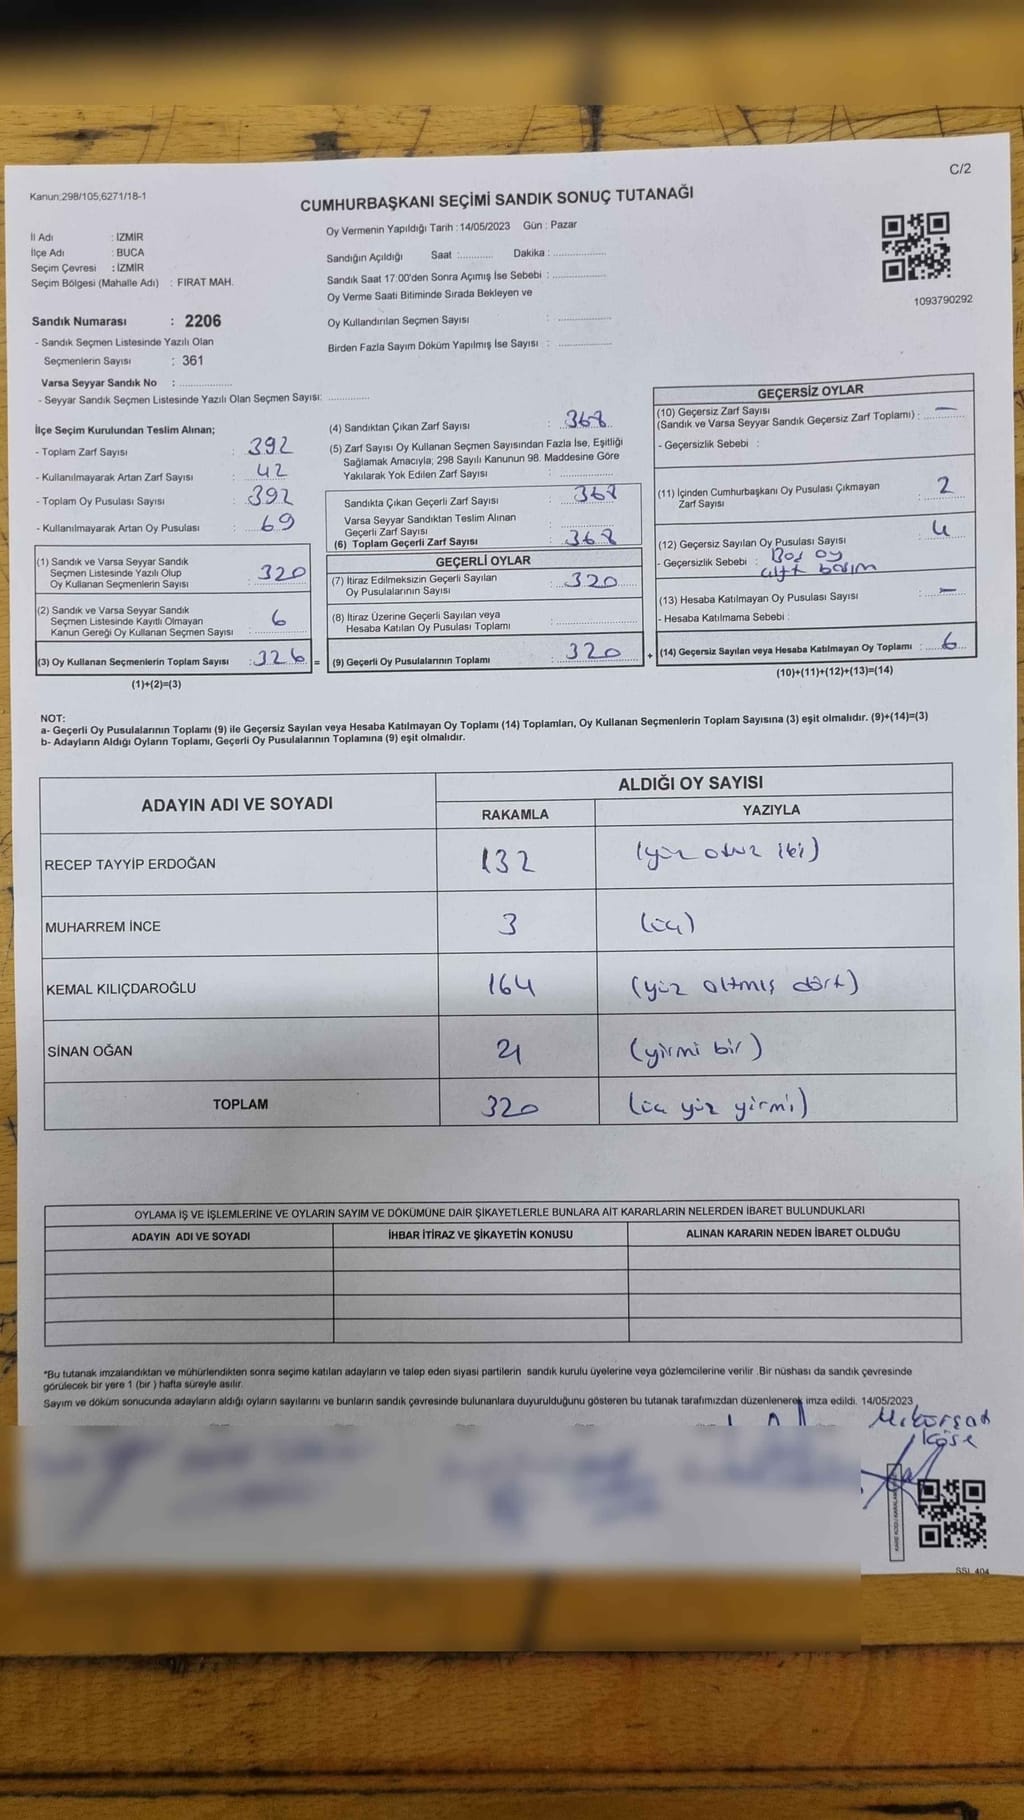 C/2
Kanun:298/105,6271/18-1
CUMHURBAŞKANI SEÇİMİ SANDIK SONUÇ TUTANAĞI
İl Adı : İZMİR
İlçe Adı : BUCA
Seçim Çevresi : İZMİR
Seçim Bölgesi (Mahalle Adı) : FIRAT MAH.
Sandık Numarası : 2206
- Sandık Seçmen Listesinde Yazılı Olan
Seçmenlerin Sayısı : 361
Varsa Seyyar Sandık No : ................
- Seyyar Sandık Seçmen Listesinde Yazılı Olan Seçmen Sayısı: ............
Oy Vermenin Yapıldığı Tarih : 14/05/2023 Gün : Pazar
Sandığın Açıldığı Saat :.......... Dakika : ................
Sandık Saat 17:00'den Sonra Açımış İse Sebebi : ................
Oy Verme Saati Bitiminde Sırada Bekleyen ve
Oy Kullandırılan Seçmen Sayısı : ................
Birden Fazla Sayım Döküm Yapılmış İse Sayısı : ................
1093790292
İlçe Seçim Kurulundan Teslim Alınan;
- Toplam Zarf Sayısı : 392
- Kullanılmayarak Artan Zarf Sayısı : 42
- Toplam Oy Pusulası Sayısı : 392
- Kullanılmayarak Artan Oy Pusulası : 69
(1) Sandık ve Varsa Seyyar Sandık
Seçmen Listesinde Yazılı Olup
Oy Kullanan Seçmenlerin Sayısı : 320
(2) Sandık ve Varsa Seyyar Sandık
Seçmen Listesinde Kayıtlı Olmayan
Kanun Gereği Oy Kullanan Seçmen Sayısı : 6
(3) Oy Kullanan Seçmenlerin Toplam Sayısı : 326 =
(1)+(2)=(3)
(4) Sandıktan Çıkan Zarf Sayısı : 368
(5) Zarf Sayısı Oy Kullanan Seçmen Sayısından Fazla İse, Eşitliği
Sağlamak Amacıyla; 298 Sayılı Kanunun 98. Maddesine Göre
Yakılarak Yok Edilen Zarf Sayısı : ................
Sandıkta Çıkan Geçerli Zarf Sayısı : 368
Varsa Seyyar Sandıktan Teslim Alınan
Geçerli Zarf Sayısı : ................
(6) Toplam Geçerli Zarf Sayısı : 368
GEÇERLİ OYLAR
(7) İtiraz Edilmeksizin Geçerli Sayılan
Oy Pusulalarının Sayısı : 320
(8) İtiraz Üzerine Geçerli Sayılan veya
Hesaba Katılan Oy Pusulası Toplamı : ................
(9) Geçerli Oy Pusulalarının Toplamı : 320 +
GEÇERSİZ OYLAR
(10) Geçersiz Zarf Sayısı
(Sandık ve Varsa Seyyar Sandık Geçersiz Zarf Toplamı) : —
- Geçersizlik Sebebi :
(11) İçinden Cumhurbaşkanı Oy Pusulası Çıkmayan
Zarf Sayısı : 2
(12) Geçersiz Sayılan Oy Pusulası Sayısı : 4
- Geçersizlik Sebebi : Boş oy
çift basım
(13) Hesaba Katılmayan Oy Pusulası Sayısı : —
- Hesaba Katılmama Sebebi :
(14) Geçersiz Sayılan veya Hesaba Katılmayan Oy Toplamı : 6
(10)+(11)+(12)+(13)=(14)
NOT:
a- Geçerli Oy Pusulalarının Toplamı (9) ile Geçersiz Sayılan veya Hesaba Katılmayan Oy Toplamı (14) Toplamları, Oy Kullanan Seçmenlerin Toplam Sayısına (3) eşit olmalıdır. (9)+(14)=(3)
b- Adayların Aldığı Oyların Toplamı, Geçerli Oy Pusulalarının Toplamına (9) eşit olmalıdır.
ADAYIN ADI VE SOYADI ALDIĞI OY SAYISI
RAKAMLA YAZIYLA
RECEP TAYYİP ERDOĞAN 132 (yüz otuz iki)
MUHARREM İNCE 3 (üç)
KEMAL KILIÇDAROĞLU 164 (yüz altmış dört)
SİNAN OĞAN 21 (yirmi bir)
TOPLAM 320 (üç yüz yirmi)
OYLAMA İŞ VE İŞLEMLERİNE VE OYLARIN SAYIM VE DÖKÜMÜNE DAİR ŞİKAYETLERLE BUNLARA AİT KARARLARIN NELERDEN İBARET BULUNDUKLARI
ADAYIN ADI VE SOYADI İHBAR İTİRAZ VE ŞİKAYETİN KONUSU ALINAN KARARIN NEDEN İBARET OLDUĞU
*Bu tutanak imzalandıktan ve mühürlendikten sonra seçime katılan adayların ve talep eden siyasi partilerin sandık kurulu üyelerine veya gözlemcilerine verilir .Bir nüshası da sandık çevresinde
görülecek bir yere 1 (bir ) hafta süreyle asılır.
Sayım ve döküm sonucunda adayların aldığı oyların sayılarını ve bunların sandık çevresinde bulunanlara duyurulduğunu gösteren bu tutanak tarafımızdan düzenlenerek imza edildi. 14/05/2023
Köse
SSL 404